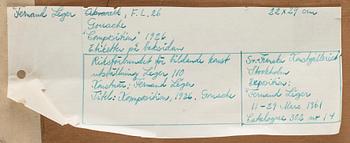 Fernand Leger Akvarell, F.L. 26 22 x 29 cm
Gouache
"Composition" 1926
Etiketter på baksidan
Riksförbundet för bildande konst
utställning Leger 110
Konstnär: Fernand Leger
Titel: Komposition, 1926. Gouache
Svensk-Franska Konstgalleriet
Stockholm
Exposition:
"Fernand Leger
11-29 Mars 1961
Catalogue 303 nr 14